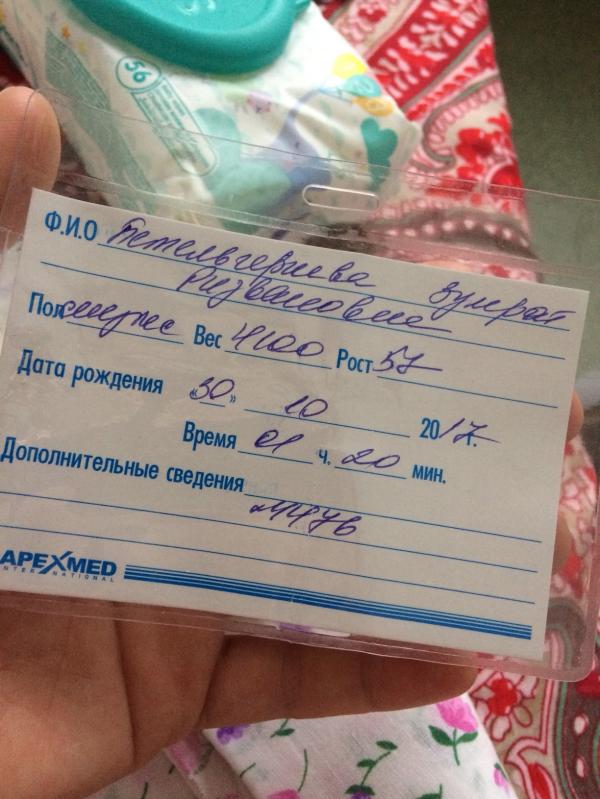 56
Ф.И.О Бетельгериева Зумрат
Ризвановна
Пол муж Вес 4100 Рост 57
Дата рождения «30» 10 2017г.
Время 01 ч. 20 мин.
Дополнительные сведения
APEXMED
INTERNATIONAL